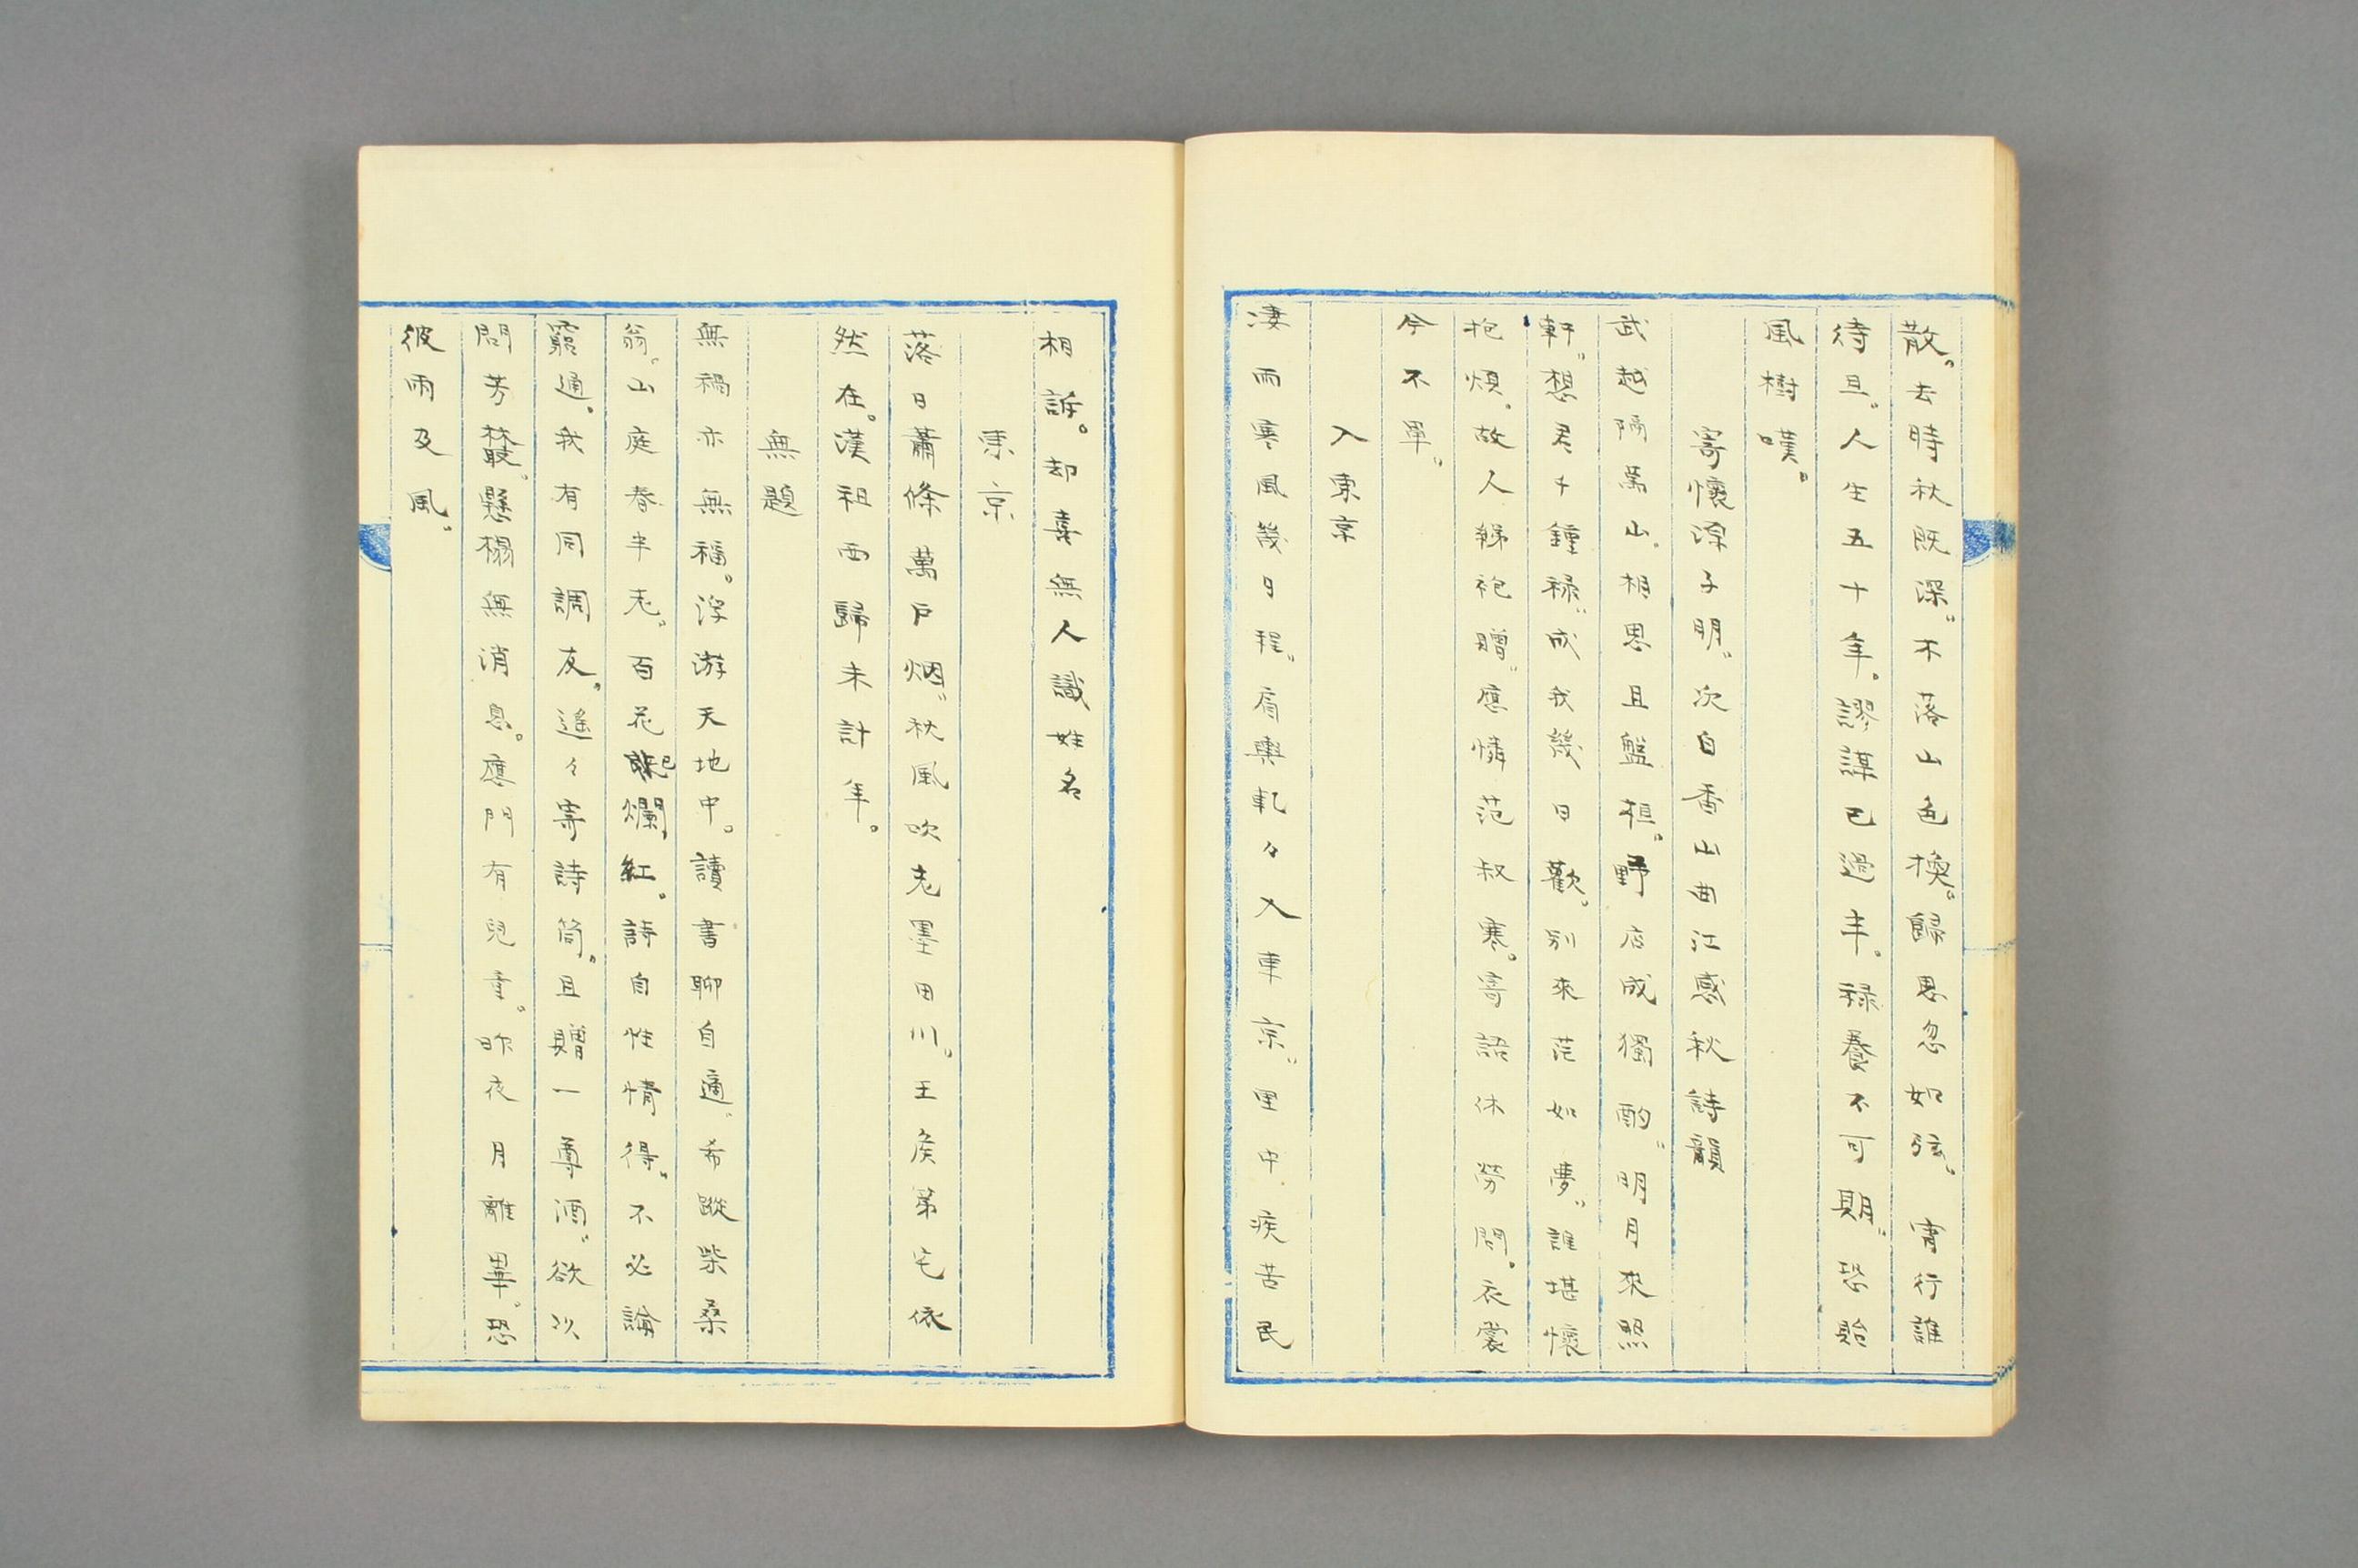 散。去時秋既深。不落山色換。歸思忽如弦。宵行誰
待旦。人生五十年。謬謀已過半。祿養不可期。恐貽
風樹嘆。
寄懷深子明。次白香山曲江感秋詩韻
武越隔萬山。相思且盤桓。野店成獨酌。明月來照
軒。想君千鍾祿。成我幾日歡。別來茫如夢。誰堪懷
抱煩。故人綈袍贈。應憐范叔寒。寄語休勞問。衣裳
今不單。
入東京
凄雨寒風幾日程。肩輿軋々入東京。里中疾苦民
相訴。却喜無人識姓名
東京
落日蕭條萬戶烟。秋風吹老墨田川。王侯第宅依
然在。漢祖西歸未計年。
無題
無禍亦無福。浮游天地中。讀書聊自適。希蹤柴桑
翁。山庭春半老。百花已爛紅。詩自性情得。不必論
窮通。我有同調友。遙々寄詩筒。且贈一尊酒。欲以
問芳叢。懸榻無消息。應門有兒童。昨夜月離畢。恐
彼雨及風。